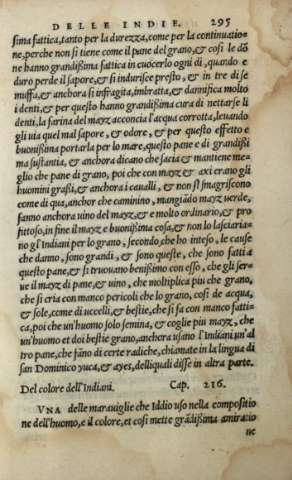 DELLE INDIE. 295
sima fattica, tanto per la durezza, come per la continuatio-
ne, perche non si tiene come il pane del grano, et cosi le dõ
ne hanno grandissima fattica in cuocerlo ogni di, quando e
duro perde il sapore, et si indurisce presto, et in tre di se
muffa, et anchora si infragita, imbratta, et damnifica molto
i denti, et per questo hanno grandissima cura di nettarse li
denti, la farina del mayz acconcia l'acqua corrotta, leuando
gli uia quel mal sapore, et odore, et per questo effetto e
buonissima portarla per lo mare, questo pane e di grandissi
ma sustantia, et anchora dicano che sacia et mantiene me-
glio che pane di grano, poi che con mayz et axi erano gli
huomini grassi, et anchora i caualli, et non si smagriscono
come di qua, anchor che caminino, mangiãdo mayz uerde,
fanno anchora uino del mayz, et e molto ordinario, et pro
fittoso, in fine il mayz e buonissima cosa, et non lo lasciaria-
no gl'Indiani per lo grano, secondo, che ho inteso, le cause
che danno, sono grandi, et sono queste, che sono fatti a
questo pane, et si truouano benissimo con esso, che gli ser-
ue il mayz di pane, et uino, che multiplica piu che grano,
che si cria con manco pericoli che lo grano, cosi de acqua,
et sole, come di uccelli, et bestie, che si fa con manco fatti-
ca, poi che un'huomo solo semina, et coglie piu mayz, che
un'huomo et doi bestie grano, anchora usano l'Indiani un'al
tro pane, che fãno di certe radiche, chiamate in la lingua di
san Dominico yuca, et ayes, delliquali disse in altra parte.
Del colore dell'Indiani. Cap. 216.
VNA delle marauiglie che Iddio uso nella compositio
ne dell'huomo, e il colore, et cosi mette grãdissima amiratio
ne